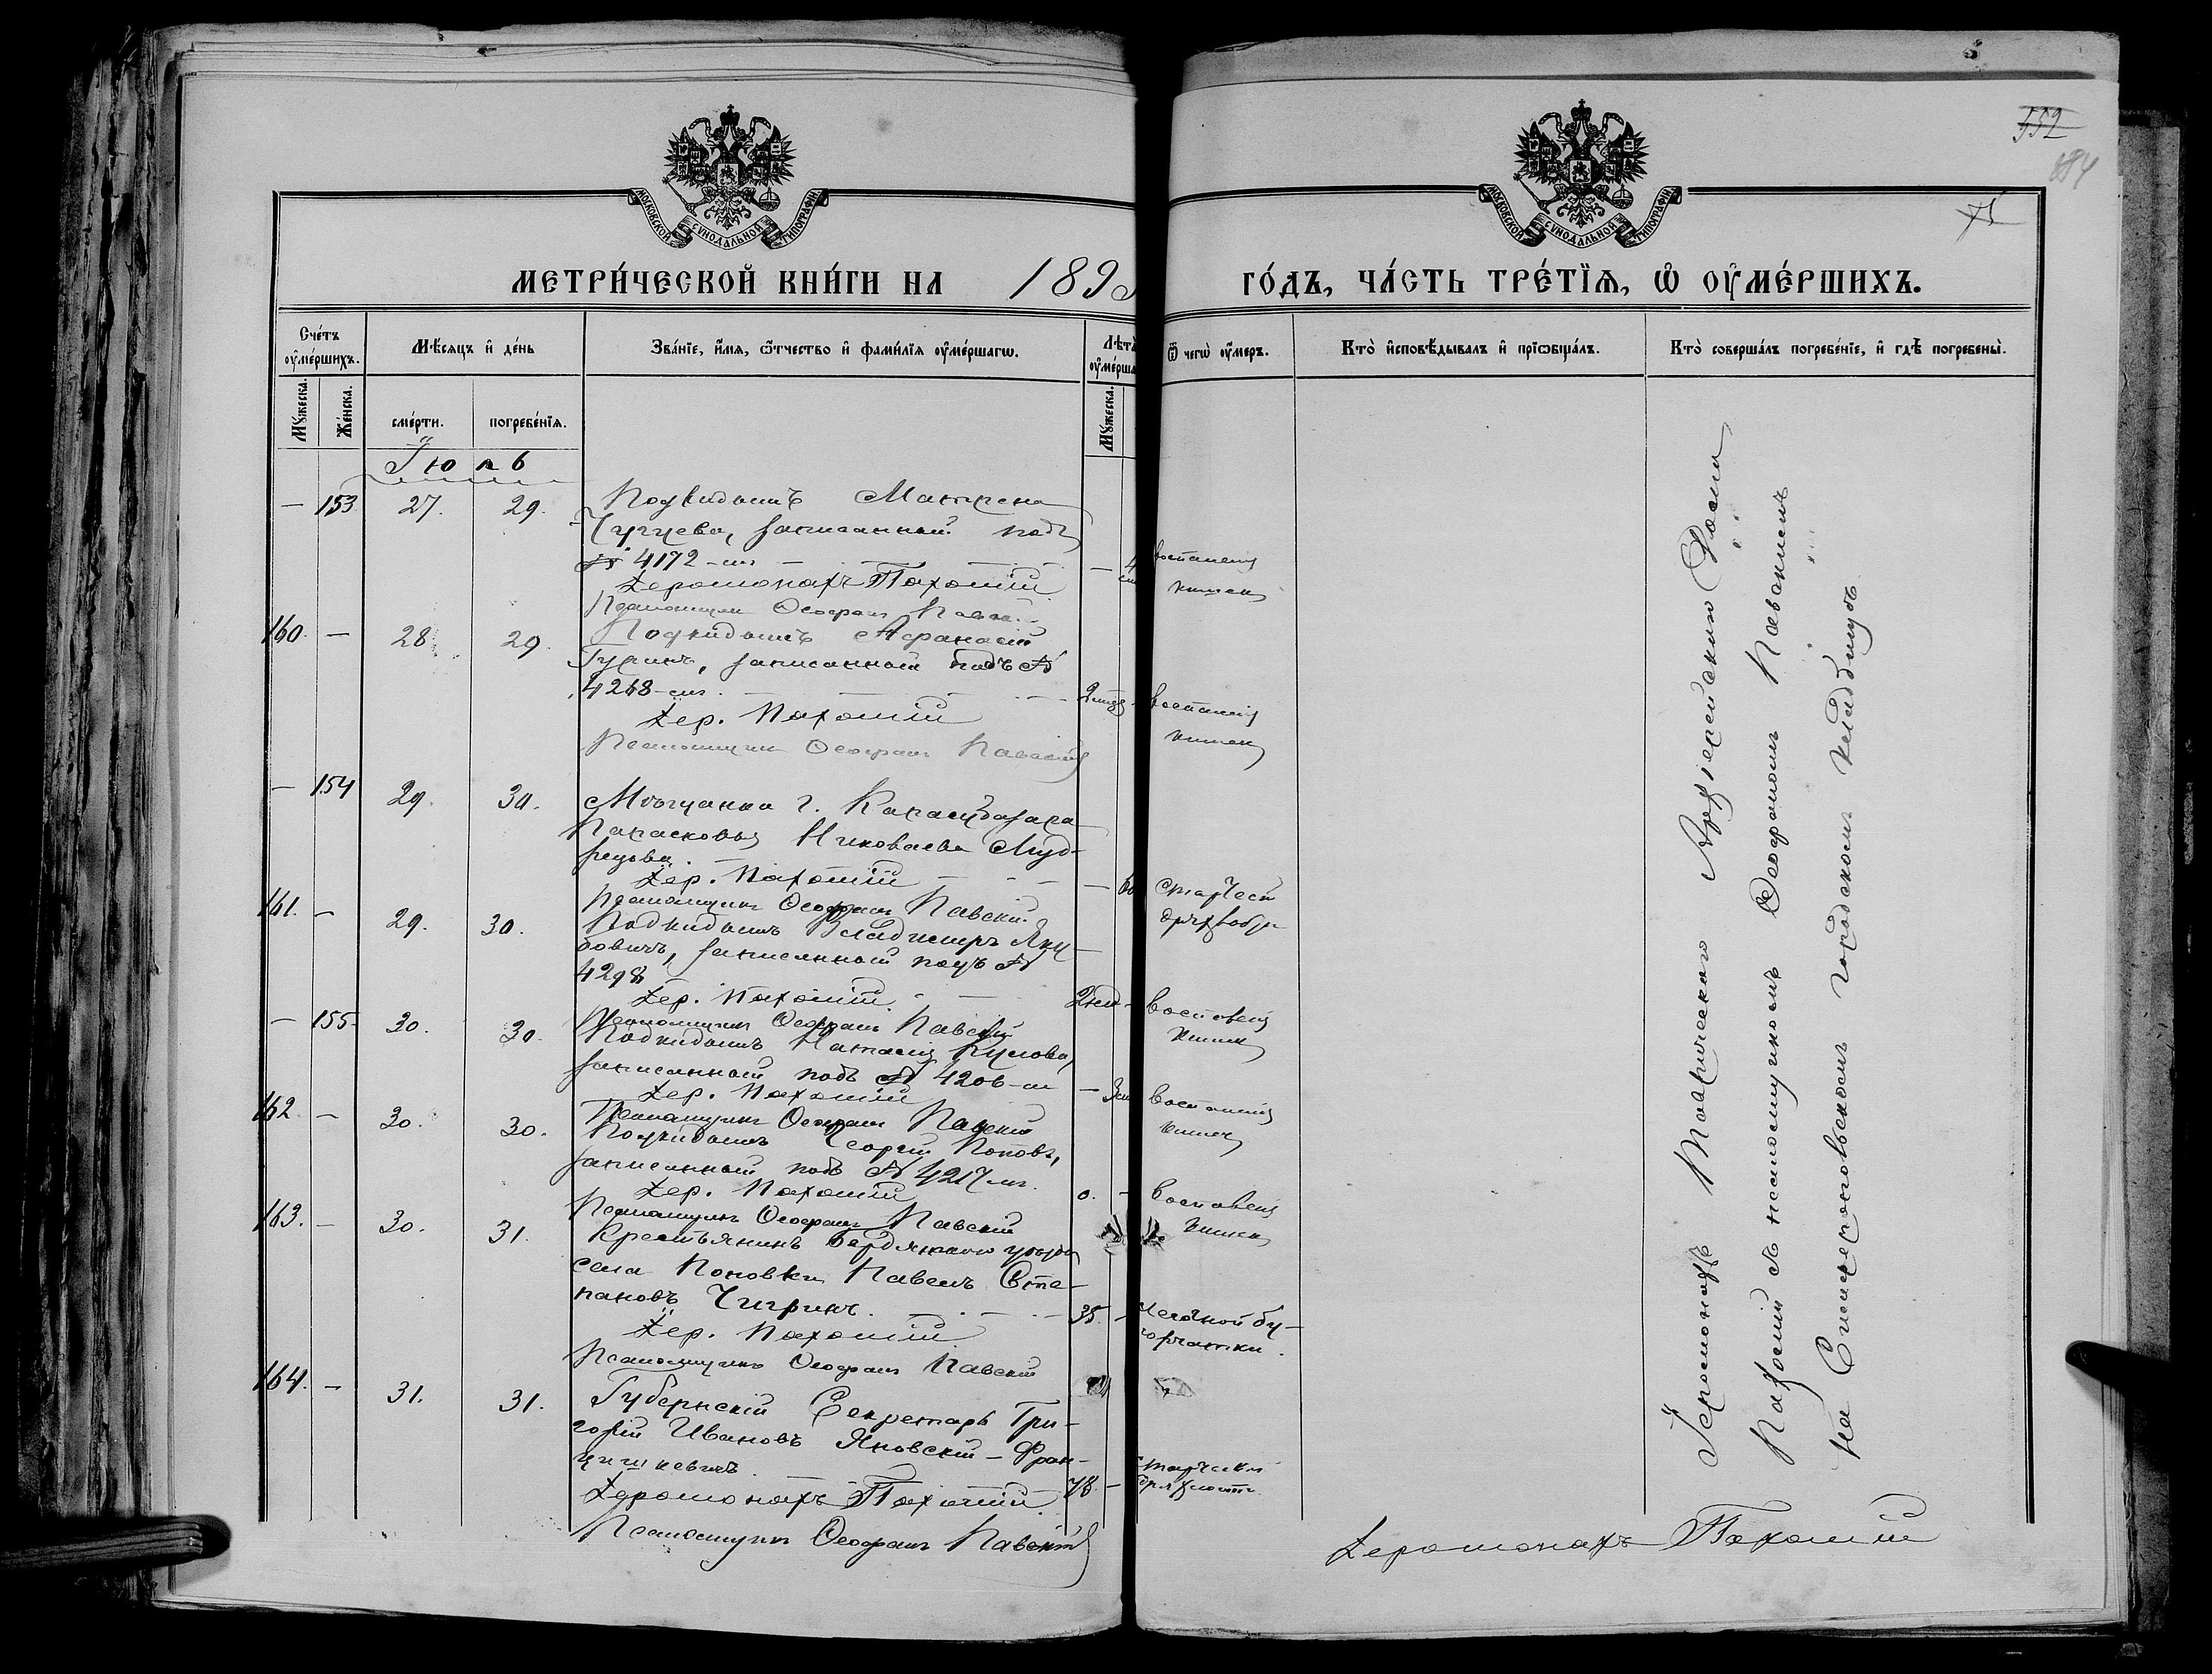 552
МОСКОВСКОЙ СѴНОДАЛЬНОЙ ТИПОГРАФІИ
МОСКОВСКОЙ СѴНОДАЛЬНОЙ ТИПОГРАФІИ
МЕТРИ́ЧЕСКОЙ КНИ́ГИ НА 189
ГО́ДЪ, ЧА́СТЬ ТРЕ́ТІѦ, Ѡ҆ ОУ҆МЕ́РШИХЪ.
Сче́тъ оу҆ме́ршихъ.
Мѣ́сяцъ и҆ де́нь
Зва́нїе, и҆́мѧ, ѻ҆́тчество и҆ фами́лїѧ оу҆ме́ршагѡ.
Лѣта̀
Ѿ чегѡ̀ оу҆́меръ.
Кто̀ и҆сповѣ́дывалъ и҆ прїѡбща́лъ.
Кто̀ соверша́лъ погребе́нїе, и҆ гдѣ̀ погребены̀.
Мꙋ́жеска.
Же́нска.
сме́рти.
погребе́нїѧ.
Мꙋ́жеска.
Іюль
— 153 27. 29. Подкидышъ Матрена
записанный подъ
№ 4172-мъ
Іеромонахъ Пахомій
Псаломщикъ Ѳеофанъ Павскій
воспаленія кишекъ
160. — 28. 29. Подкидышъ Афанасій
записанный подъ №
Іер. Пахомій
Псаломщикъ Ѳеофанъ Павскій
воспаленія кишекъ
— 154 29. 30. Мѣщанка г. Карасубазара
Парасковья Николаева
Іер. Пахомій
Псаломщикъ Ѳеофанъ Павскій
старчес
дряхлости
161. — 29. 30. Подкидышъ Владимиръ Яку-
бовичъ, записанный подъ №
4298
Іер. Пахомій
Псаломщикъ Ѳеофанъ Павскій
2 нед — воспаленія
кишекъ
— 155. 30. 30. Подкидышъ Наталія
записанный подъ № 4206-мъ
Іер. Пахомій
Псаломщикъ Ѳеофанъ Павскій
воспаленія
кишекъ
162. — 30. 30. Подкидышъ Георгій Поповъ,
записанный подъ № 4217-мъ.
Іер. Пахомій
Псаломщикъ Ѳеофанъ Павскій
воспаленія
кишекъ
163. — 30. 31. Крестьянинъ Бердянскаго уѣзда
села Поповки Павелъ Сте-
пановъ Чигринъ.
Іер. Пахомій
Псаломщикъ Ѳеофанъ Павскій
35. — легочной бу-
горчатки.
164. — 31. 31. Губернскій Секретарь Гри-
горій Ивановъ Яновскій-Фран-
цишкевичъ.
Іеромонахъ Пахомій
Псаломщикъ Ѳеофанъ Павскій
78. — старческой
дряхлости.
Іеромонахъ Таврическаго Архіерейскаго Дома
Пахомій съ псаломщикомъ Ѳеофаномъ Павскимъ
На Симферопольскомъ городскомъ кладбищѣ
Іеромонахъ Пахомій